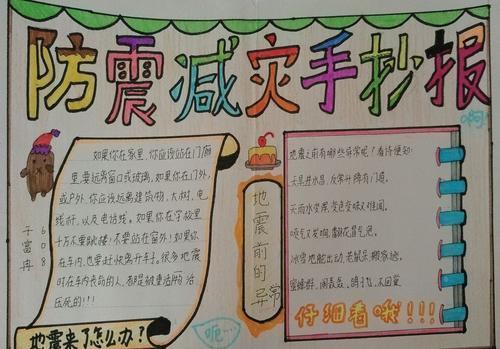 防震减灾手抄报
啊
如果你在家里,你应该站在门窗
里,要远离窗口或玻璃,如果你在门外,
或户外,你应该远离建筑物,大树,电
线杆,以及电话线。如果你在学校里
千万不要跳楼!不要站在窗外!如果你
在车内,也要赶快离开车子。很多地震
时在车内丧命的人,都是被重活物
压死的!!!
地震来了怎么办?
608
于富冉
地震前的异常
地震之前有哪些异常呢?看诗便知:
天旱井水冒,反常升得有门道。
天雨水变浑,变色变味又难闻。
喷气又发响,翻花冒气泡。
冰雪地蛇出动,老鼠忘搬家逃。
仔细看哦!!!
呃…